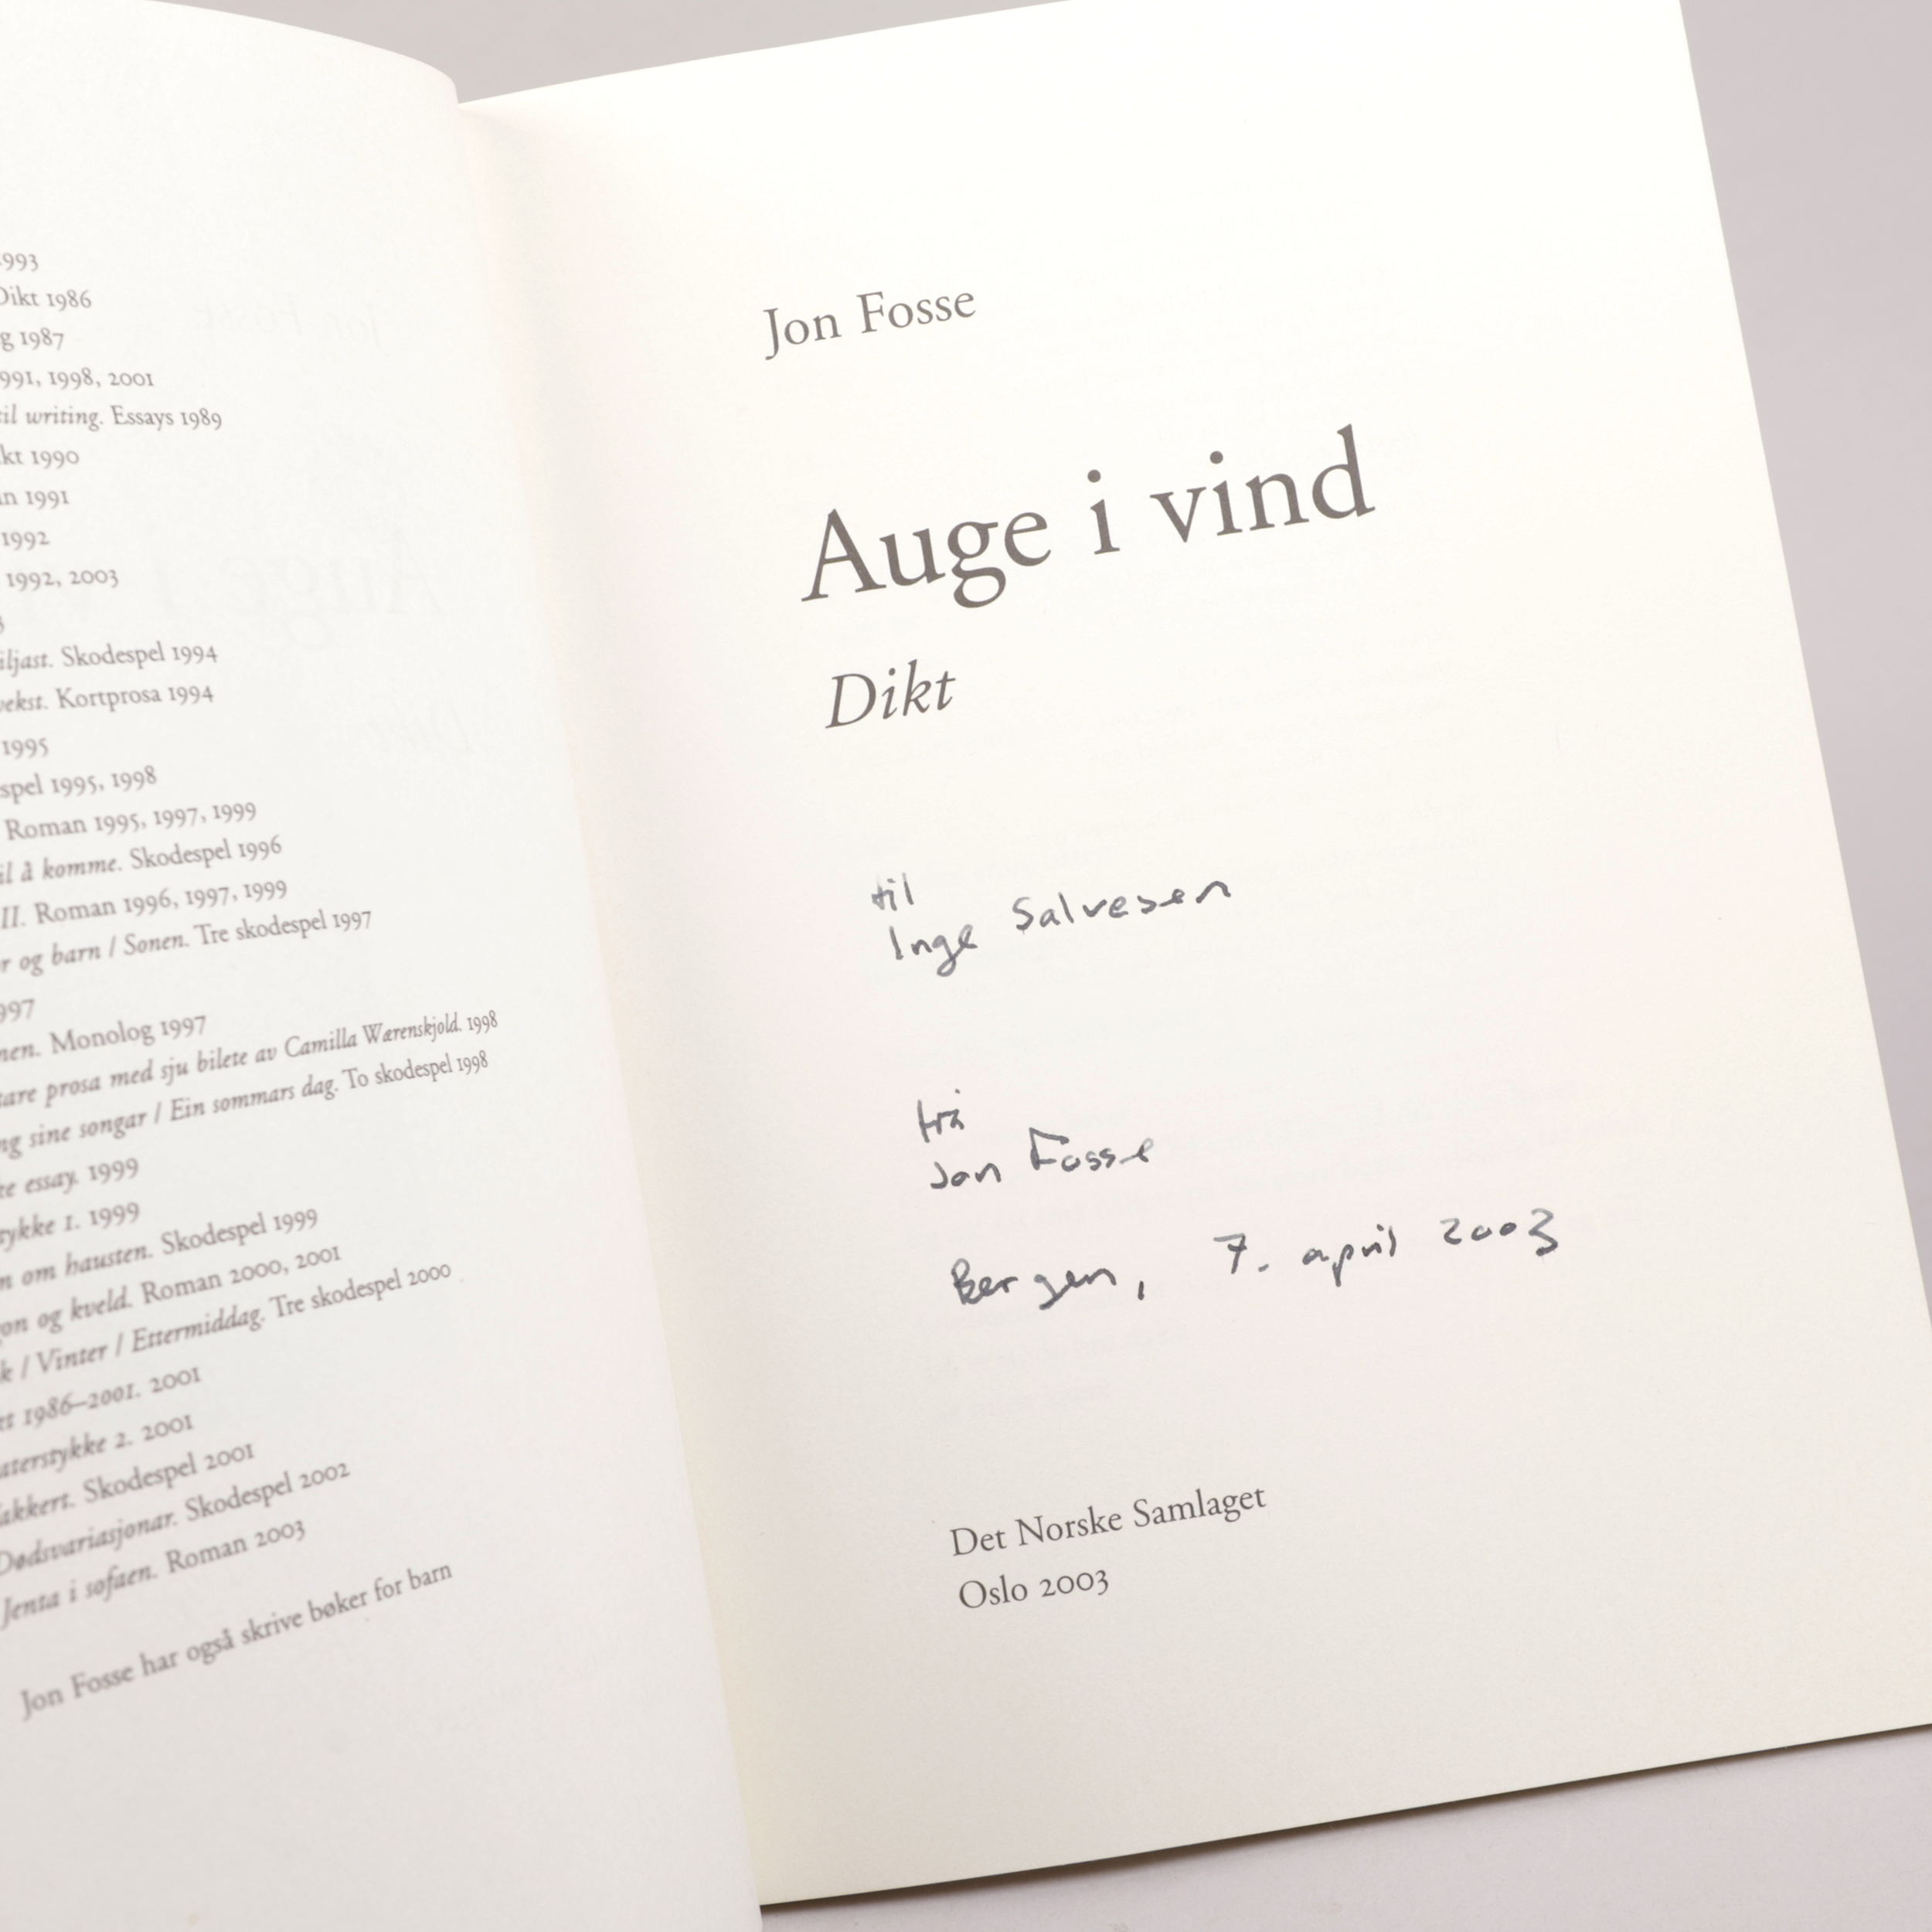 1993
Dikt 1986
g 1987
1991, 1998, 2001
til writing. Essays 1989
kt 1990
an 1991
1992
1992, 2003
iljast. Skodespel 1994
vekst. Kortprosa 1994
1995
spel 1995, 1998
Roman 1995, 1997, 1999
il å komme. Skodespel 1996
II. Roman 1996, 1997, 1999
r og barn / Sonen. Tre skodespel 1997
997
nen. Monolog 1997
tare prosa med sju bilete av Camilla Wærenskjold. 1998
ng sine songar / Ein sommars dag. To skodespel 1998
te essay. 1999
tykke 1. 1999
m om hausten. Skodespel 1999
gon og kveld. Roman 2000, 2001
k / Vinter / Ettermiddag. Tre skodespel 2000
kt 1986–2001. 2001
aterstykke 2. 2001
akkert. Skodespel 2001
Dødsvariasjonar. Skodespel 2002
Jenta i sofaen. Roman 2003
Jon Fosse har også skrive bøker for barn
Jon Fosse
Auge i vind
Dikt
til
Inge Salvesen
frå
Jon Fosse
Bergen, 7. april 2003
Det Norske Samlaget
Oslo 2003